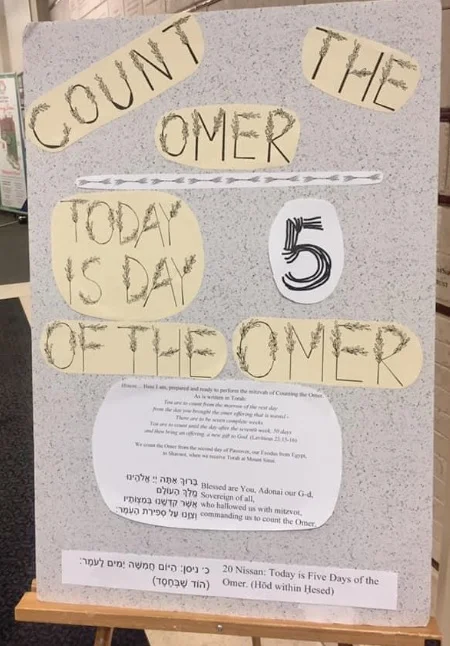 COUNT THE
OMER
TODAY
IS DAY
5
OF THE OMER
Hineni... Here I am, prepared and ready to perform the mitzvah of Counting the Omer.
As is written in Torah:
You are to count from the morrow of the rest day
from the day you brought the omer offering that is waved -
There are to be seven complete weeks
You are to count until the day after the seventh week, 50 days
and then bring an offering, a new gift to God. (Leviticus 23:15-16)
We count the Omer from the second day of Passover, our Exodus from Egypt,
to Shavuot, when we receive Torah at Mount Sinai.
בָּרוּךְ אַתָּה יְיָ אֱלֹהֵינוּ
מֶלֶךְ הָעוֹלָם
אֲשֶׁר קִדְּשָׁנוּ בְּמִצְוֹתָיו
וְצִוָּנוּ עַל סְפִירַת הָעֹמֶר.
Blessed are You, Adonai our G-d,
Sovereign of all,
who hallowed us with mitzvot,
commanding us to count the Omer.
כ׳ ניסן: הַיּוֹם חֲמִשָּׁה יָמִים לָעֹמֶר:
(הוֹד שֶׁבְּחֶסֶד)
20 Nissan: Today is Five Days of the
Omer. (Hōd within Ḥesed)